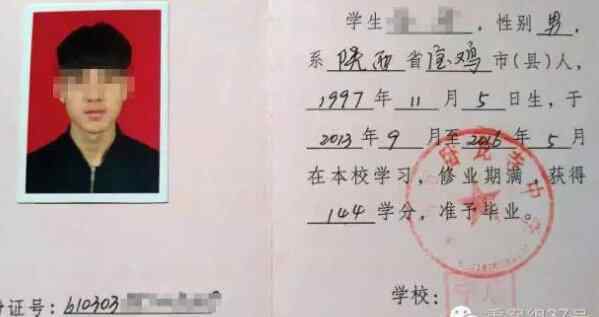 学生 , 性别 男,
系 陕西 省 宝鸡 市(县)人,
1997 年 11 月 5 日生, 于
2013 年 9 月至 2016 年 5 月
在本校学习, 修业期满, 获得
144 学分, 准予毕业。
证号: 610303
学校: